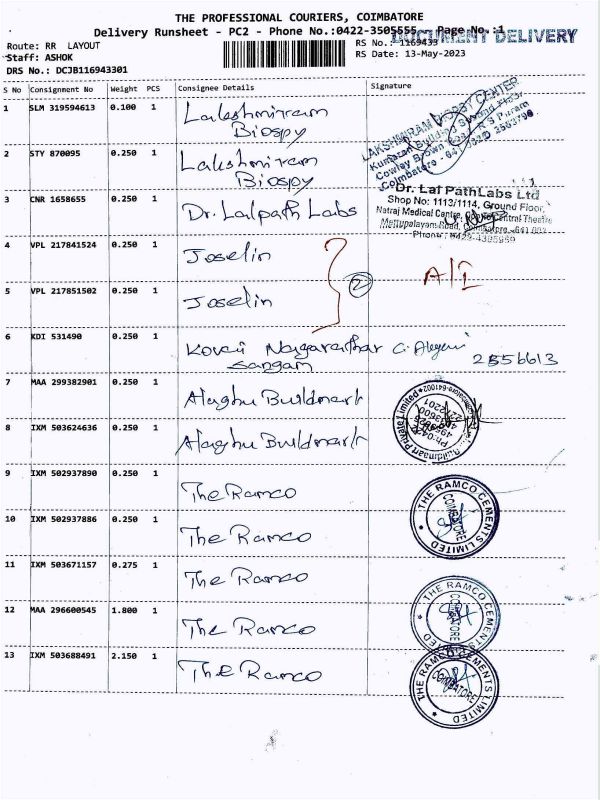 THE PROFESSIONAL COURIERS, COIMBATORE
Delivery Runsheet - PC2 - Phone No.:0422-3505555 Page No.:1
DOCUMENT DELIVERY
Route: RR LAYOUT
RS No.: 1169433
Staff: ASHOK
RS Date: 13-May-2023
DRS No.: DCJB116943301
S No Consignment No Weight PCS Consignee Details Signature
1 SLM 319594613 0.100 1 Lakshmiram
Biospy
LAKSHMIRAM BIOPSY CENTER
Kumaran Building Second Floor
Cowley Brown R S Puram
Coimbatore - 641
2 STY 870095 0.250 1 Lakshmiram
Biospy
3 CNR 1658655 0.250 1 Dr. Lalpath Labs
Dr. Lal PathLabs Ltd
Shop No: 1113/1114, Ground Floor,
Natraj Medical Centre, Central Theatre
Mettupalayam Road, Coimbatore - 641
Phone: 0422-4395959
4 VPL 217841524 0.250 1 Joselin
2
5 VPL 217851502 0.250 1 Joselin
6 KDI 531490 0.250 1 Kovai Nagarathar
Sangam
2556613
7 MAA 299382901 0.250 1 Alaghu Buildmart
8 IXM 503624636 0.250 1 Alaghu Buildmart
9 IXM 502937890 0.250 1 The Ramco
THE RAMCO CEMENTS LIMITED
COIMBATORE
10 IXM 502937886 0.250 1 The Ramco
11 IXM 503671157 0.275 1 The Ramco
12 MAA 296600545 1.800 1 The Ramco
THE RAMCO CEMENTS LIMITED
COIMBATORE
13 IXM 503688491 2.150 1 The Ramco
THE RAMCO CEMENTS LIMITED
COIMBATORE